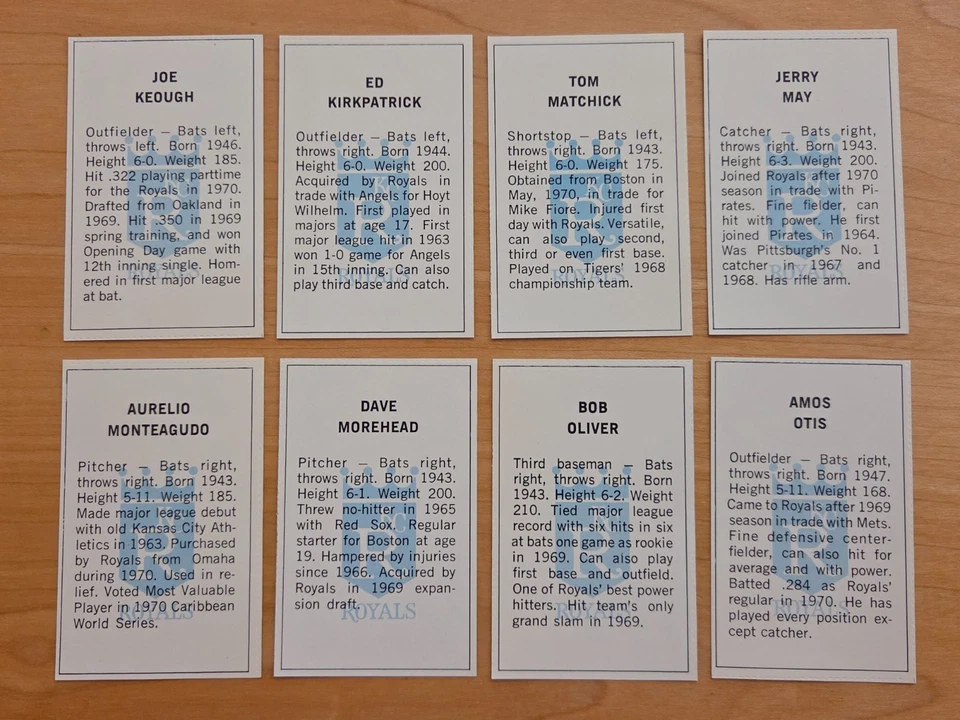 JOE
KEOUGH
Outfielder — Bats left,
throws left. Born 1946.
Height 6-0. Weight 185.
Hit .322 playing parttime
for the Royals in 1970.
Drafted from Oakland in
1969. Hit .350 in 1969
spring training, and won
Opening Day game with
12th inning single. Hom-
ered in first major league
at bat.
ROYALS
ED
KIRKPATRICK
Outfielder — Bats left,
throws right. Born 1944.
Height 6-0. Weight 200.
Acquired by Royals in
trade with Angels for Hoyt
Wilhelm. First played in
majors at age 17. First
major league hit in 1963
won 1-0 game for Angels
in 15th inning. Can also
play third base and catch.
ROYALS
TOM
MATCHICK
Shortstop — Bats left,
throws right. Born 1943.
Height 6-0. Weight 175.
Obtained from Boston in
May, 1970, in trade for
Mike Fiore. Injured first
day with Royals. Versatile,
can also play second,
third or even first base.
Played on Tigers' 1968
championship team.
ROYALS
JERRY
MAY
Catcher — Bats right,
throws right. Born 1943.
Height 6-3. Weight 200.
Joined Royals after 1970
season in trade with Pi-
rates. Fine fielder, can
hit with power. He first
joined Pirates in 1964.
Was Pittsburgh's No. 1
catcher in 1967 and
1968. Has rifle arm.
ROYALS
AURELIO
MONTEAGUDO
Pitcher — Bats right,
throws right. Born 1943.
Height 5-11. Weight 185.
Made major league debut
with old Kansas City Ath-
letics in 1963. Purchased
by Royals from Omaha
during 1970. Used in re-
lief. Voted Most Valuable
Player in 1970 Caribbean
World Series.
ROYALS
DAVE
MOREHEAD
Pitcher — Bats right,
throws right. Born 1943.
Height 6-1. Weight 200.
Threw no-hitter in 1965
with Red Sox. Regular
starter for Boston at age
19. Hampered by injuries
since 1966. Acquired by
Royals in 1969 expan-
sion draft.
ROYALS
BOB
OLIVER
Third baseman — Bats
right, throws right. Born
1943. Height 6-2. Weight
210. Tied major league
record with six hits in six
at bats one game as rookie
in 1969. Can also play
first base and outfield.
One of Royals' best power
hitters. Hit team's only
grand slam in 1969.
ROYALS
AMOS
OTIS
Outfielder — Bats right,
throws right. Born 1947.
Height 5-11. Weight 168.
Came to Royals after 1969
season in trade with Mets.
Fine defensive center-
fielder, can also hit for
average and with power.
Batted .284 as Royals'
regular in 1970. He has
played every position ex-
cept catcher.
ROYALS